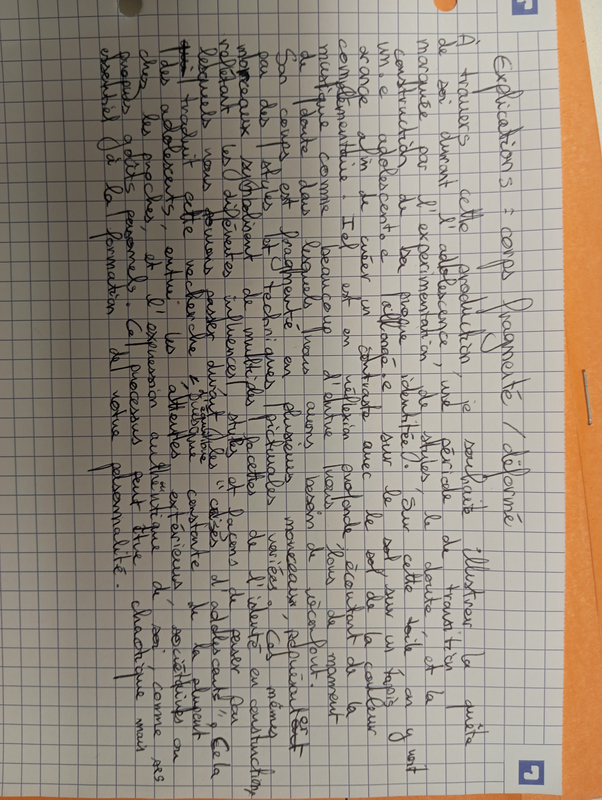 Explications = corps fragmenté / déformé
À travers cette production, je souhaite illustrer la quête
de soi durant l'adolescence, une période de transition
marquée par l'expérimentation, de styles, le doute, et la
construction de sa propre identitée. Sur cette toile on y voit
un.e adolescent.e allongé.e sur le sol, sur un tapis
orange afin de créer un contraste avec le sol de la couleur
complémentaire. Iel est en réflexion profonde, écoutant de la
musique comme beaucoup d'entre nous lors de moment
de doute dans lesquels nous avons besoin de réconfort.
Son corps est fragmenté en plusieurs morceaux, représenter
par des styles et techniques picturales variées. Ces mêmes
morceaux symbolisent de multiples facettes de l'identé en construction,
reflétant les différentes influences, styles et façons de penser par
lesquels nous pouvons passer durant les "crises d'adolescents", Cela
traduit cette recherche d'équilibre presque constante de la plupart
des adolescents, entre les attentes extérieures, sociétaires ou
chez les proches, et l'expression authentique de soi, comme ses
propres goûts personnels. Ce processus peut être chaotique mais
essentiel à la formation de notre personnalité.